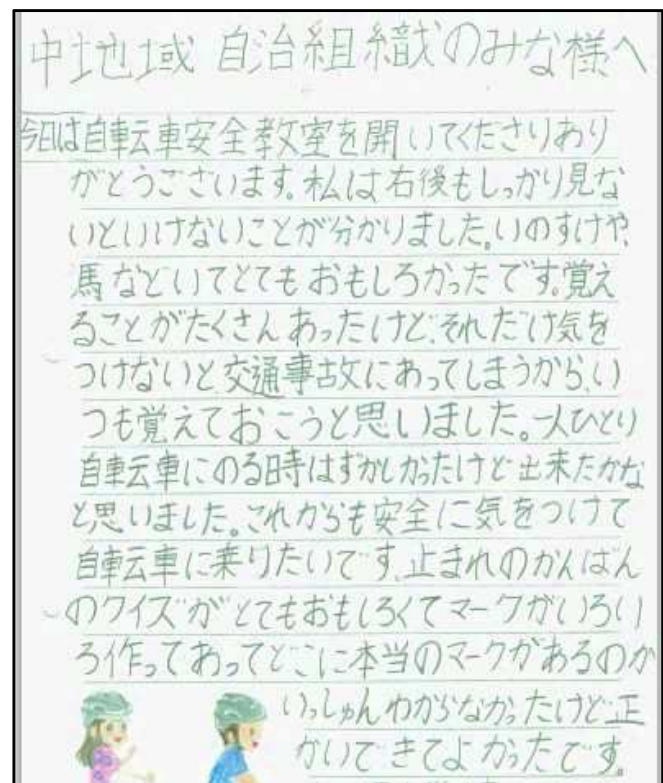 中地域 自治組織のみな様へ
今日は自転車安全教室を開いてくださりあり
がとうございます。私は右後もしっかり見な
いといけないことが分かりました。いのすけや、
馬なといてとてもおもしろかったです。覚え
ることがたくさんあったけど、それだけ気を
つけないと交通事故にあってしまうから、い
つも覚えておこうと思いました。一人ひとり
自転車にのる時はずかしかったけど出来たかな
と思いました。これからも安全に気をつけて
自転車に乗りたいです。止まれのかんばん
のクイズがとてもおもしろくてマークがいろい
ろ作ってあってどこに本当のマークがあるのか
いっしゅんわからなかったけど正
かいできてよかったです。